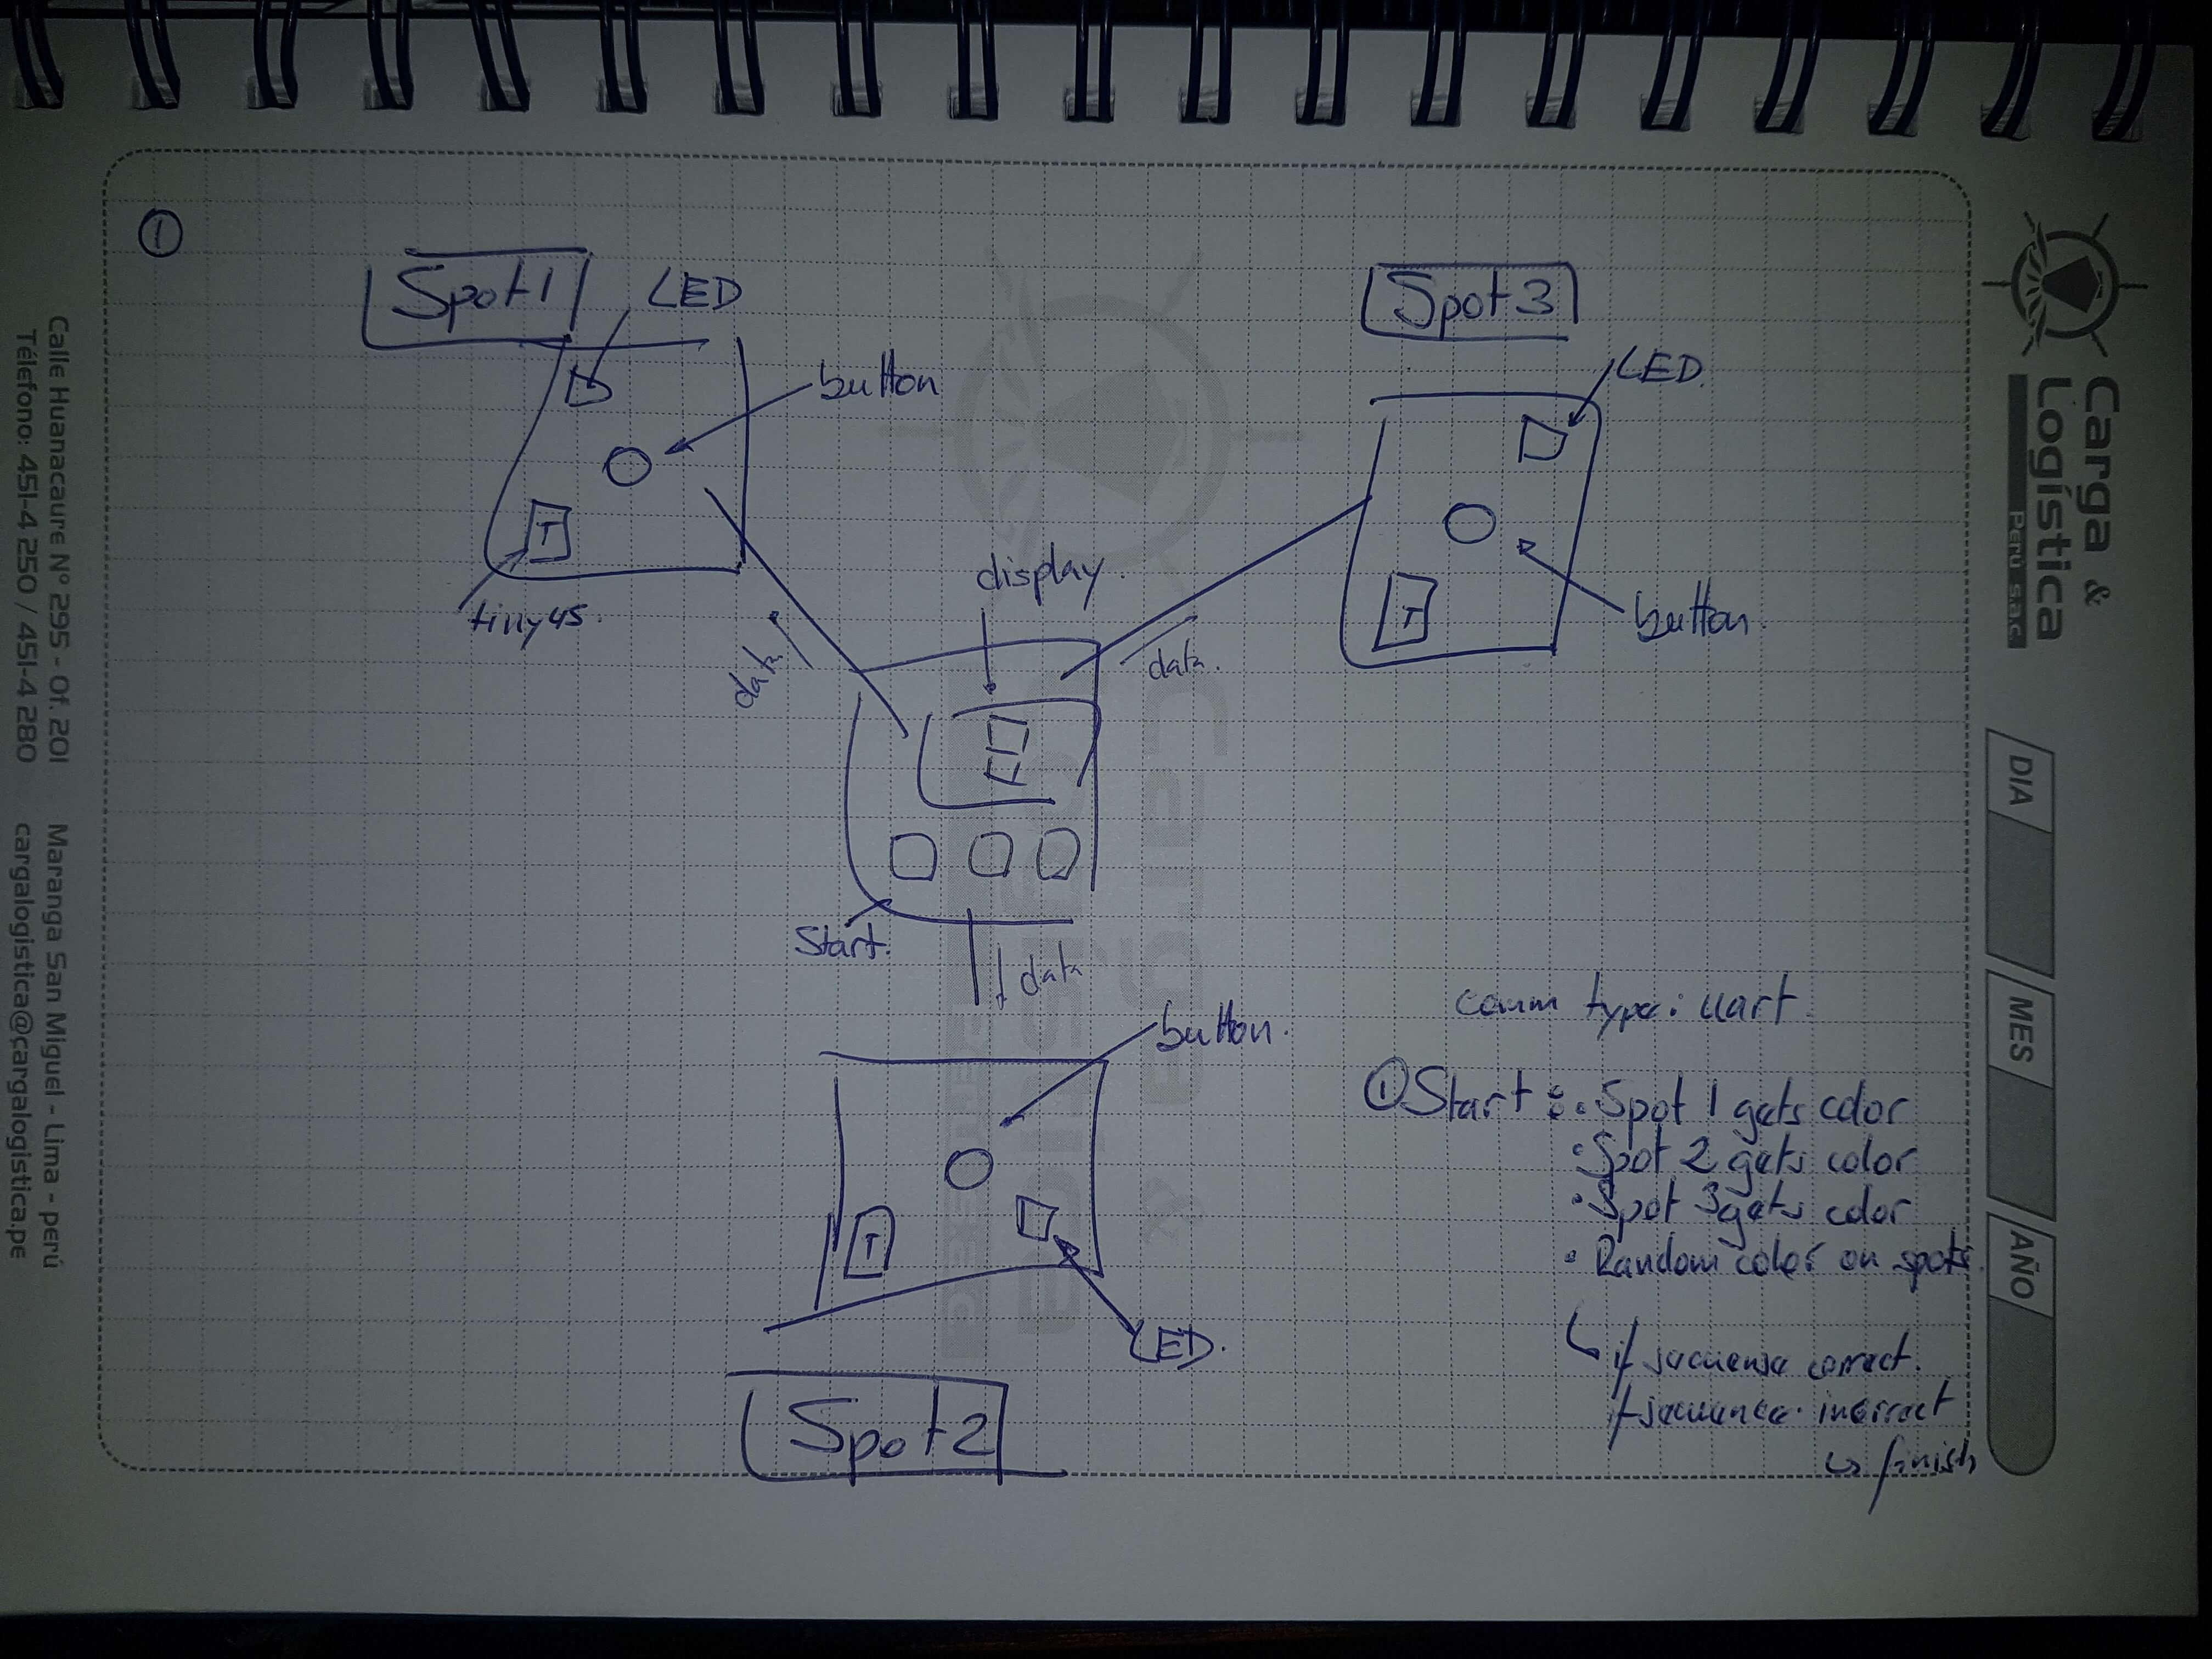 ①
Spot 1
LED
button
T
tiny45.
data
Spot 3
LED.
button.
T
data.
display.
Start.
data
button.
T
LED.
Spot 2
comm type: uart.
① Start :
• Spot 1 gets color
• Spot 2 gets color
• Spot 3 gets color
• Random color on spots.
if correct.
if
↳ finish
Carga &
Logística
PERÚ S.A.C
DIA
MES
AÑO
Calle Huanacaure N° 295 - Of. 201 Maranga San Miguel - Lima - perú
Télefono: 451-4 250 / 451-4 280 cargalogistica@cargalogistica.pe